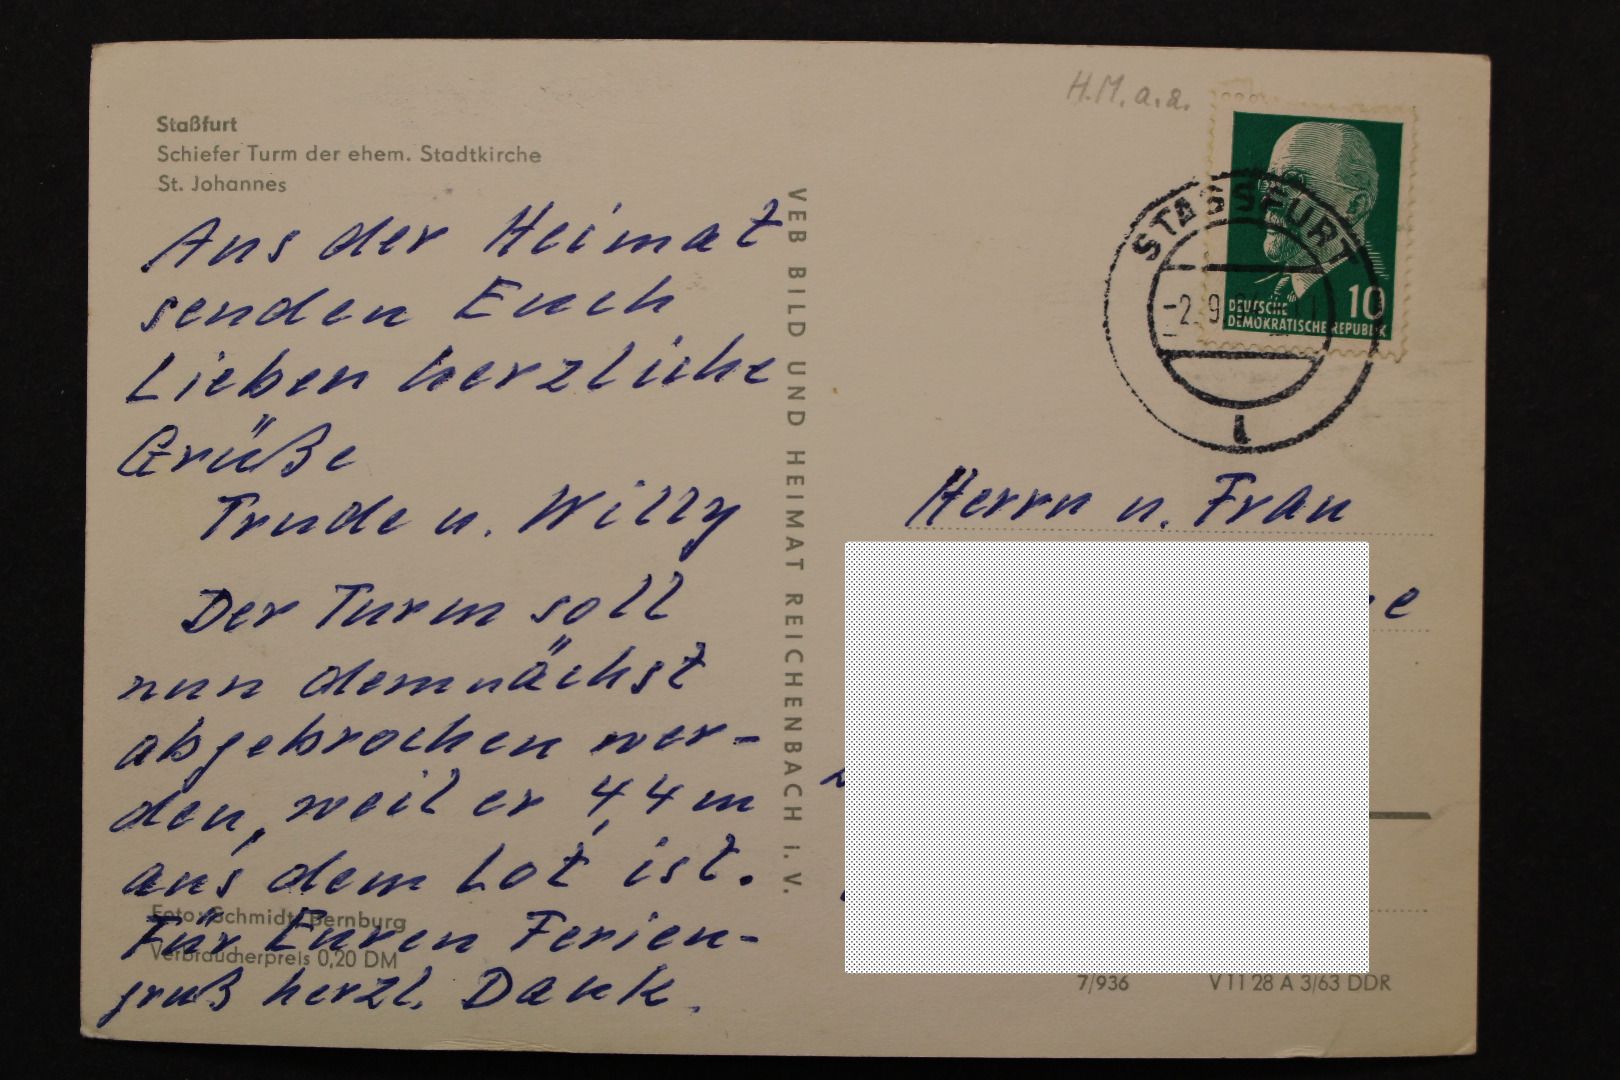 Staßfurt
Schiefer Turm der ehem. Stadtkirche
St. Johannes
Aus der Heimat
senden Euch
Lieben herzliche
Grüße
Trude u. Willy
Der Turm soll
nun demnächst
abgebrochen wer-
den, weil er 4,4 m
aus dem Lot ist.
Für Euren Ferien-
gruß herzl. Dank.
Foto: Schmidt, Bernburg
Verbraucherpreis 0,20 DM
VEB BILD UND HEIMAT REICHENBACH i. V.
H.M. a.a.
STASSFURT
-2.9.
10
DEUTSCHE
DEMOKRATISCHE REPUBLIK
Herrn u. Frau
7/936 V 11 28 A 3/63 DDR